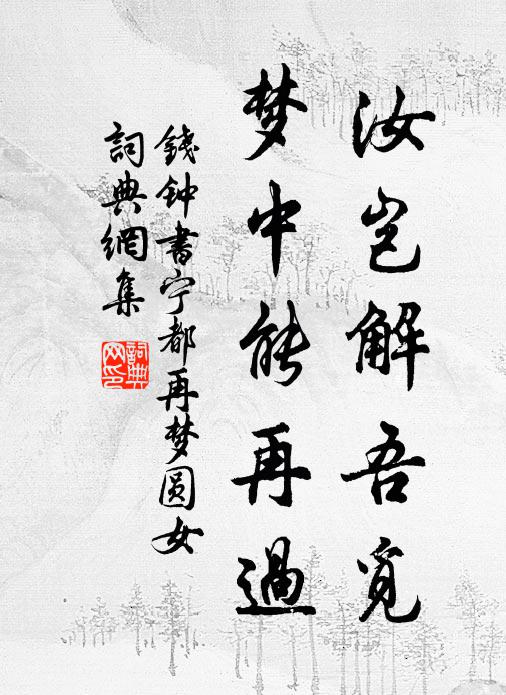 汝岂解吾觅
梦中能再過
錢钟書宁都再梦圆女
詞典網集
詞典网印